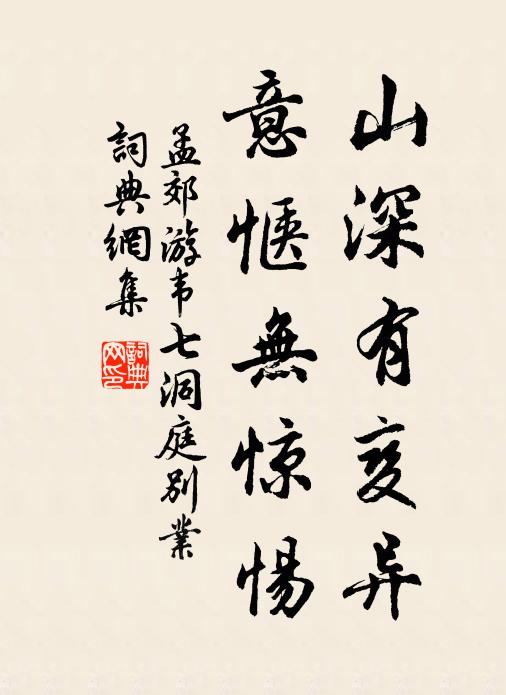 山深有变异
意惬無惊惕
孟郊游韦七洞庭别業
詞典網集
詞典网印